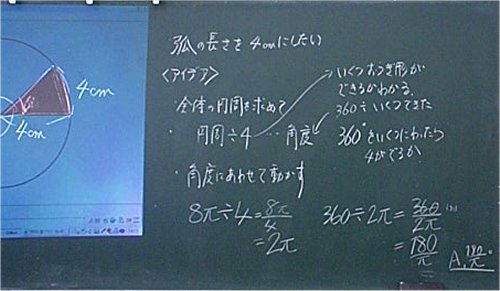 4cm
4cm
弧の長さを4cmにしたい
<アイデア>
・全体の円周を求めて
・円周÷4 … 角度
・角度にあわせて動かす
いくつおうぎ形が
できるかわかる。
360÷いくつできた
360°をいくつにわったら
4がでるか
8π÷4=8π/4
=2π
360÷2π=360/2π
=180/π
A. 180/π°